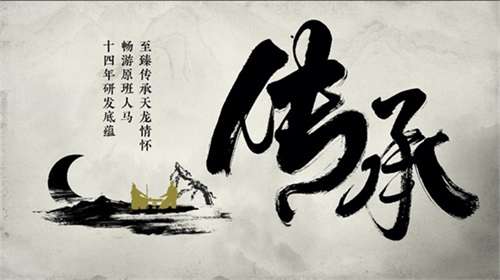 至臻传承天龙情怀
畅游原班人马
十四年研发底蕴
传承